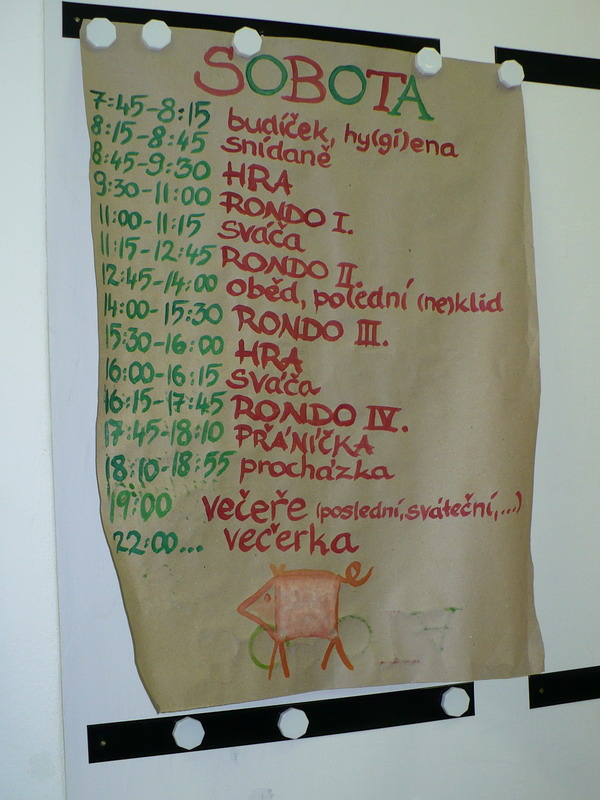 SOBOTA
7:45-8:15 budíček, hy(gi)ena
8:15-8:45 snídaně
8:45-9:30 HRA
9:30-11:00 RONDO I.
11:00-11:15 sváča
11:15-12:45 RONDO II.
12:45-14:00 oběd, polední (ne)klid
14:00-15:30 RONDO III.
15:30-16:00 HRA
16:00-16:15 sváča
16:15-17:45 RONDO IV.
17:45-18:10 PŘÁNÍČKA
18:10-18:55 procházka
19:00 večeře (poslední, sváteční,...)
22:00... večerka